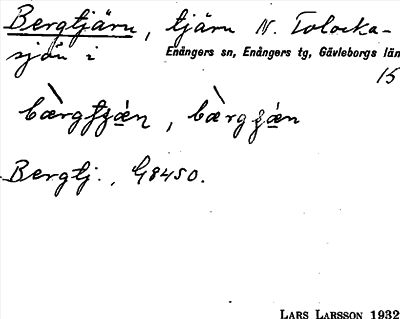 Bergtjärn, tjärn N. Tolocka-
sjön i Enångers sn, Enångers tg, Gävleborgs län
15
bærgʃɟæ̀n, bærgɟæ̀n
Bergtj., G8450.
LARS LARSSON 1932